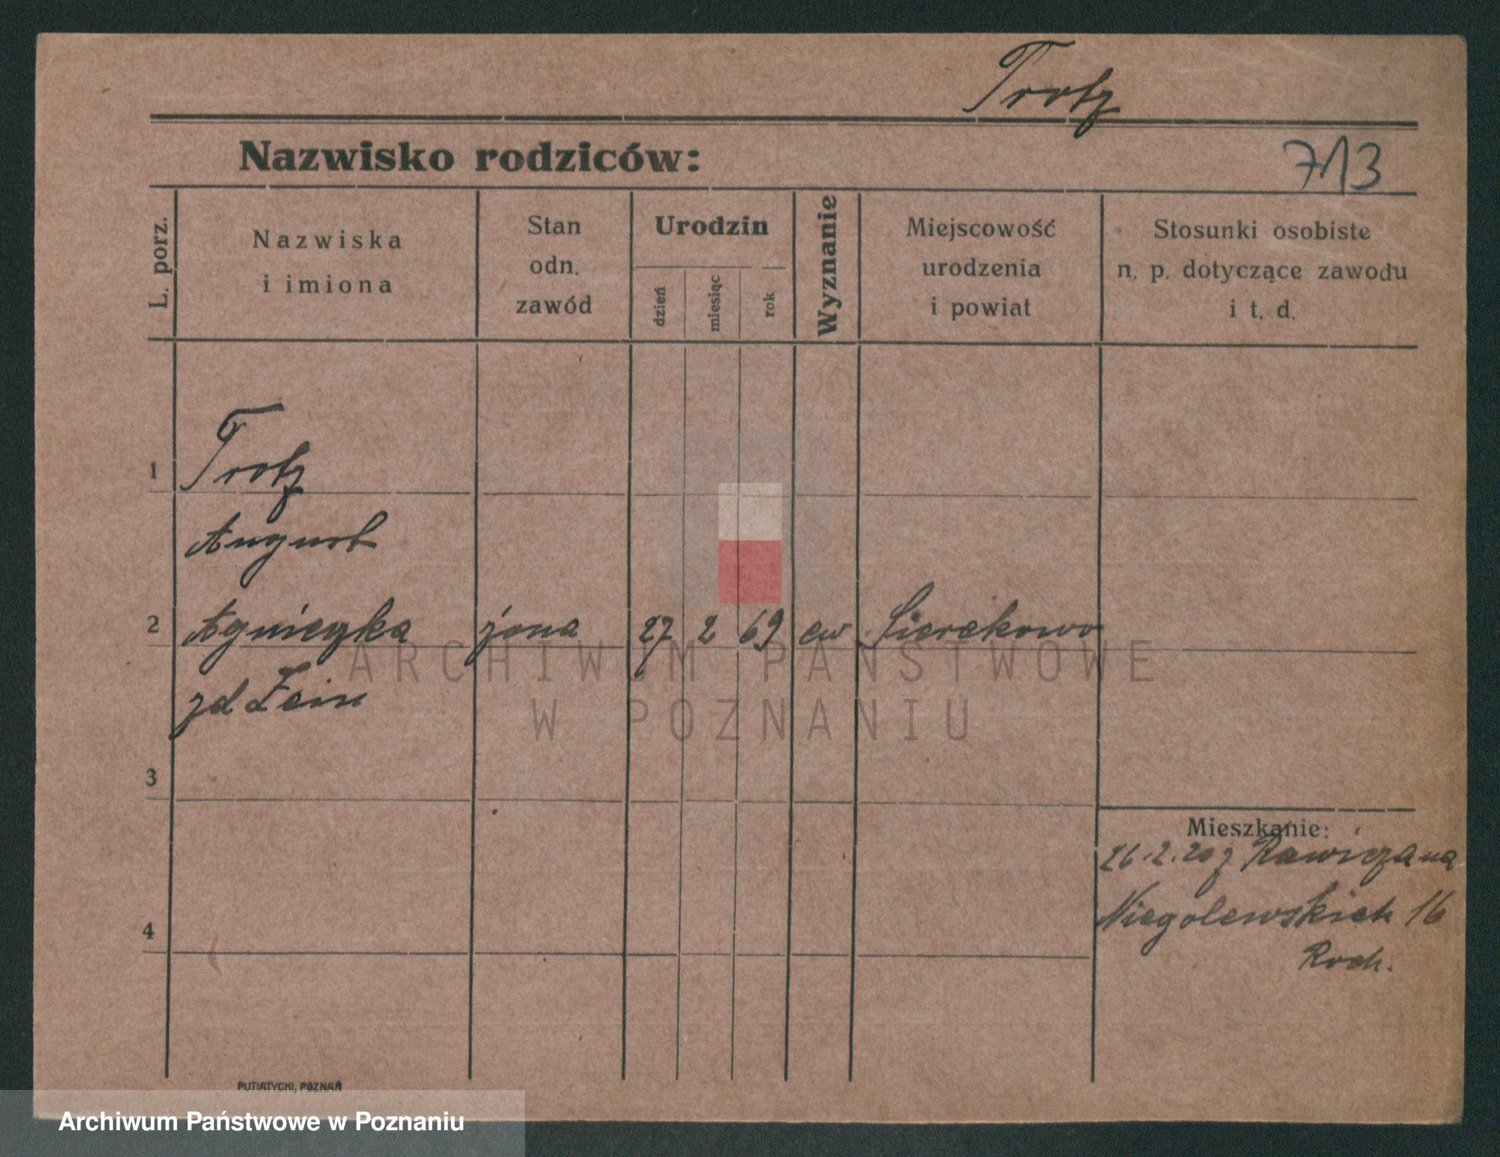 Trotz
Nazwisko rodziców:
713
L. porz.
Nazwiska
i imiona
Stan
odn.
zawód
Urodzin
dzień
miesiąc
rok
Wyznanie
Miejscowość
urodzenia
i powiat
Stosunki osobiste
n. p. dotyczące zawodu
i t. d.
1 Trotz
August
2 Agnieszka żona 27 2 69 ew Sierakowo
zd Fein
3
Mieszkanie:
26.2.20 z Rawicza na
Niegolewskich 16
4
Roch.
ARCHIWUM PAŃSTWOWE
W POZNANIU
PUTIATYCKI, POZNAŃ
Archiwum Państwowe w Poznaniu